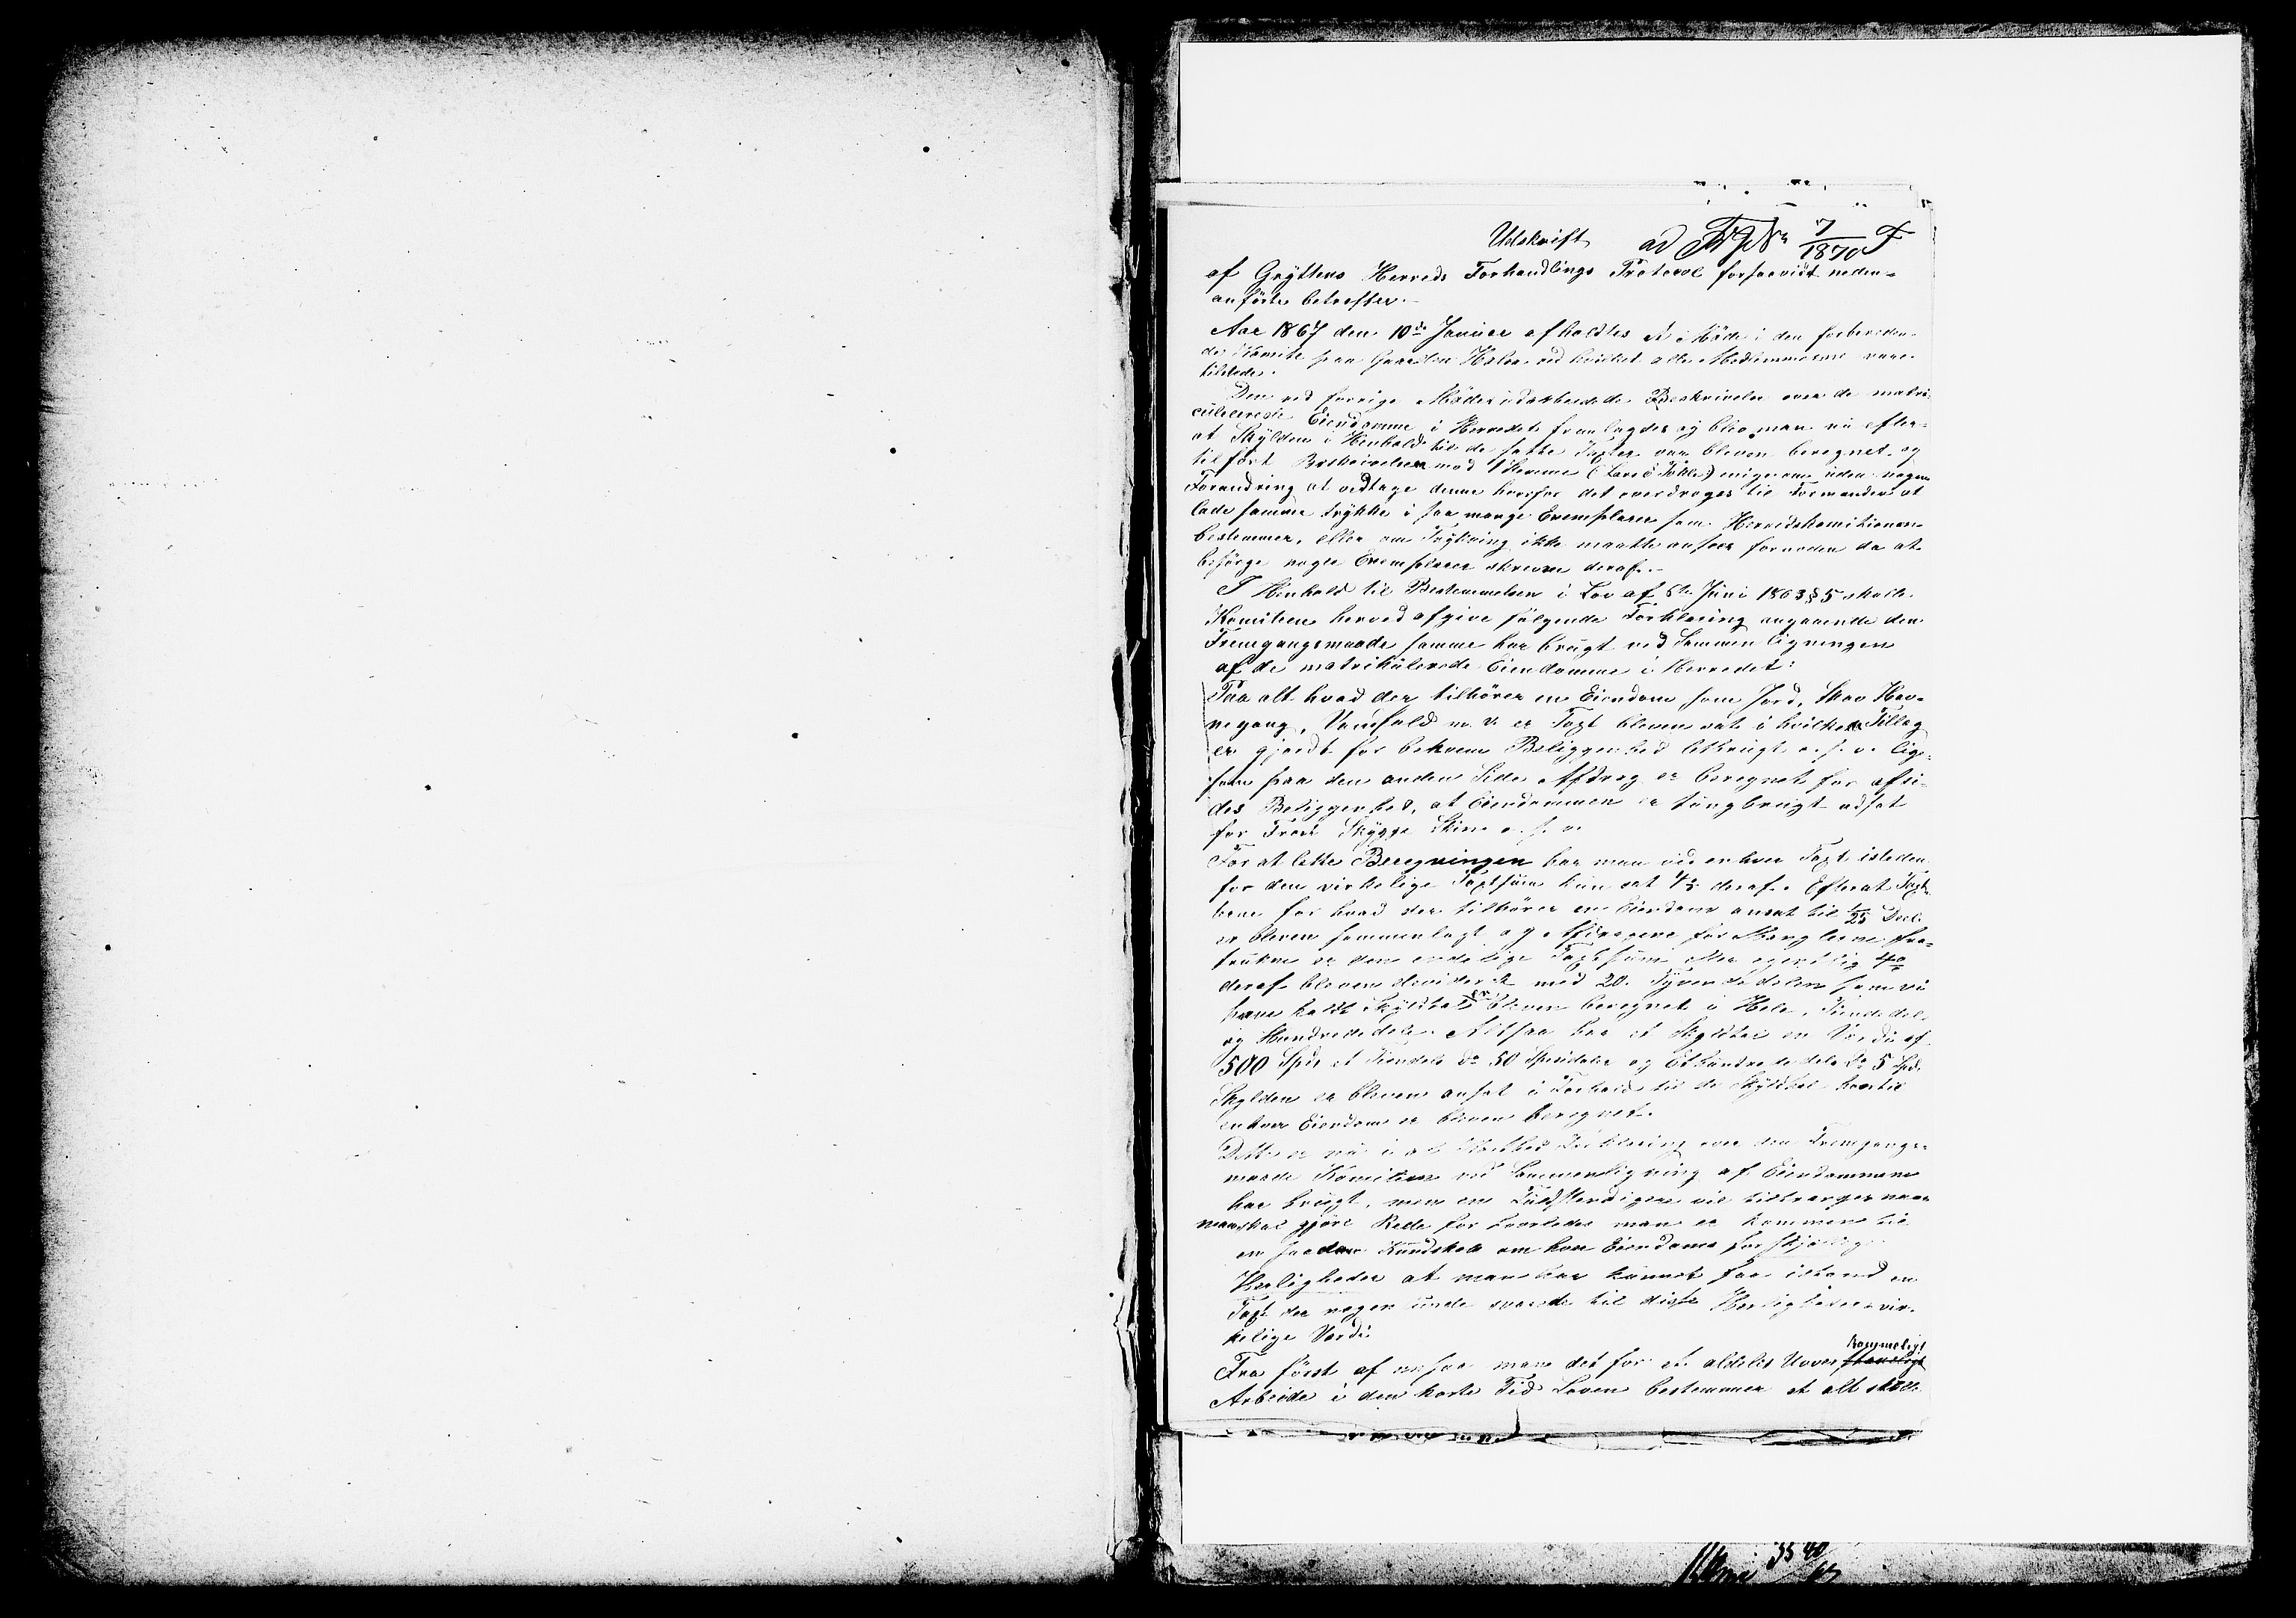 Udskrift ad 7/1870 F
af Gryttens Herreds Forhandlings Protocol forsaavidt neden-
anförte betræffer.
Aar 1867 den 10de Januar afholdtes et Möde i den forbereden-
de Komite paa Gaarden ved hvilket alle Medlemmerne vare
tilstede.
Den ved forrige Möder udarbeidede Beskrivelse over de matri-
culerede Eiendomme i Herredet fremlagdes og blev man nu efter-
at Skylden i Henhold til de satte Taxter var bleven beregnet og
tilfört Beskrivelsen med Stemme enige om uden nogen
Forandring at vedtage denne hvorfor det overdroges til Formanden at
lade samme trykke i saa mange Exemplarer som Herredskomitionen
bestemmer, eller om Trykning ikke maatte ansees fornoden da at
besörge nogle Exemplarer skrevne deraf.
I Henhold til Bestemmelsen i Lov af 6te Juni 1863 § 5 skulle
Komiteen herved afgive fölgende Forklaring angaaende den
Fremgangsmaade samme har brugt ved Sammenligningen
af de matrikulerede Eiendomme i Herredet:
Paa alt hvad der tilhörer en Eiendom som Jord, Skov Hav-
negang, Vandfald m. v. er Taxt bleven sat i hvilken Tillæg
er gjordt for bekvem Beliggenhed letbrugt o. s. v. lige-
som paa den anden Side Afdrag er beregnet for afsi-
des Beliggenhed, at Eiendommen er tungbrugt udsat
for Frost Skygge o. s. v.
For at lette Beregningen har man ved enhver Taxt isteden
for den virkelige Taxtsum kun sat 1/25 deraf. Efterat Taxt-
erne for hvad der tilhörer en Eiendom ansat til 1/25 Deel
er bleven sammenlagt og Afdragene for Manglerne fra-
trukne er den endelige Taxtsum eller egentlig
deraf bleven divideret med 20. Tyvendedelen som vi
have kaldt Skyldtal er bleven beregnet i Hele, Tiendedel
og Hundrededele. Altsaa har et Skyldtal en Værdi af
500 Spd, et Tiendels do 50 Speciedaler og Ethundrededels do 5 Spd.
Skylden er bleven ansat i Forhold til de Skyldtal hvortil
enhver Eiendom er bleven beregnet.
Dette er nu i al Forklaring over den Fremgangs-
maade Komiteen ved Sammenligning af Eiendommene
har brugt, men en Fuldstendigere vil tiltrænges naar
man skal gjöre Rede for hvorledes man er kommen til
en saadan Kundskab om hver Eiendoms forskjellige
Herligheder at man har kunnet faae istand en
Taxt der nogenlunde svarede til disse Herligheders vir-
kelige Værdi.
Fra först af ansaa man det for et aldeles Uover kommeligt
Arbeide i den korte Tid Loven bestemmer at alt skulle